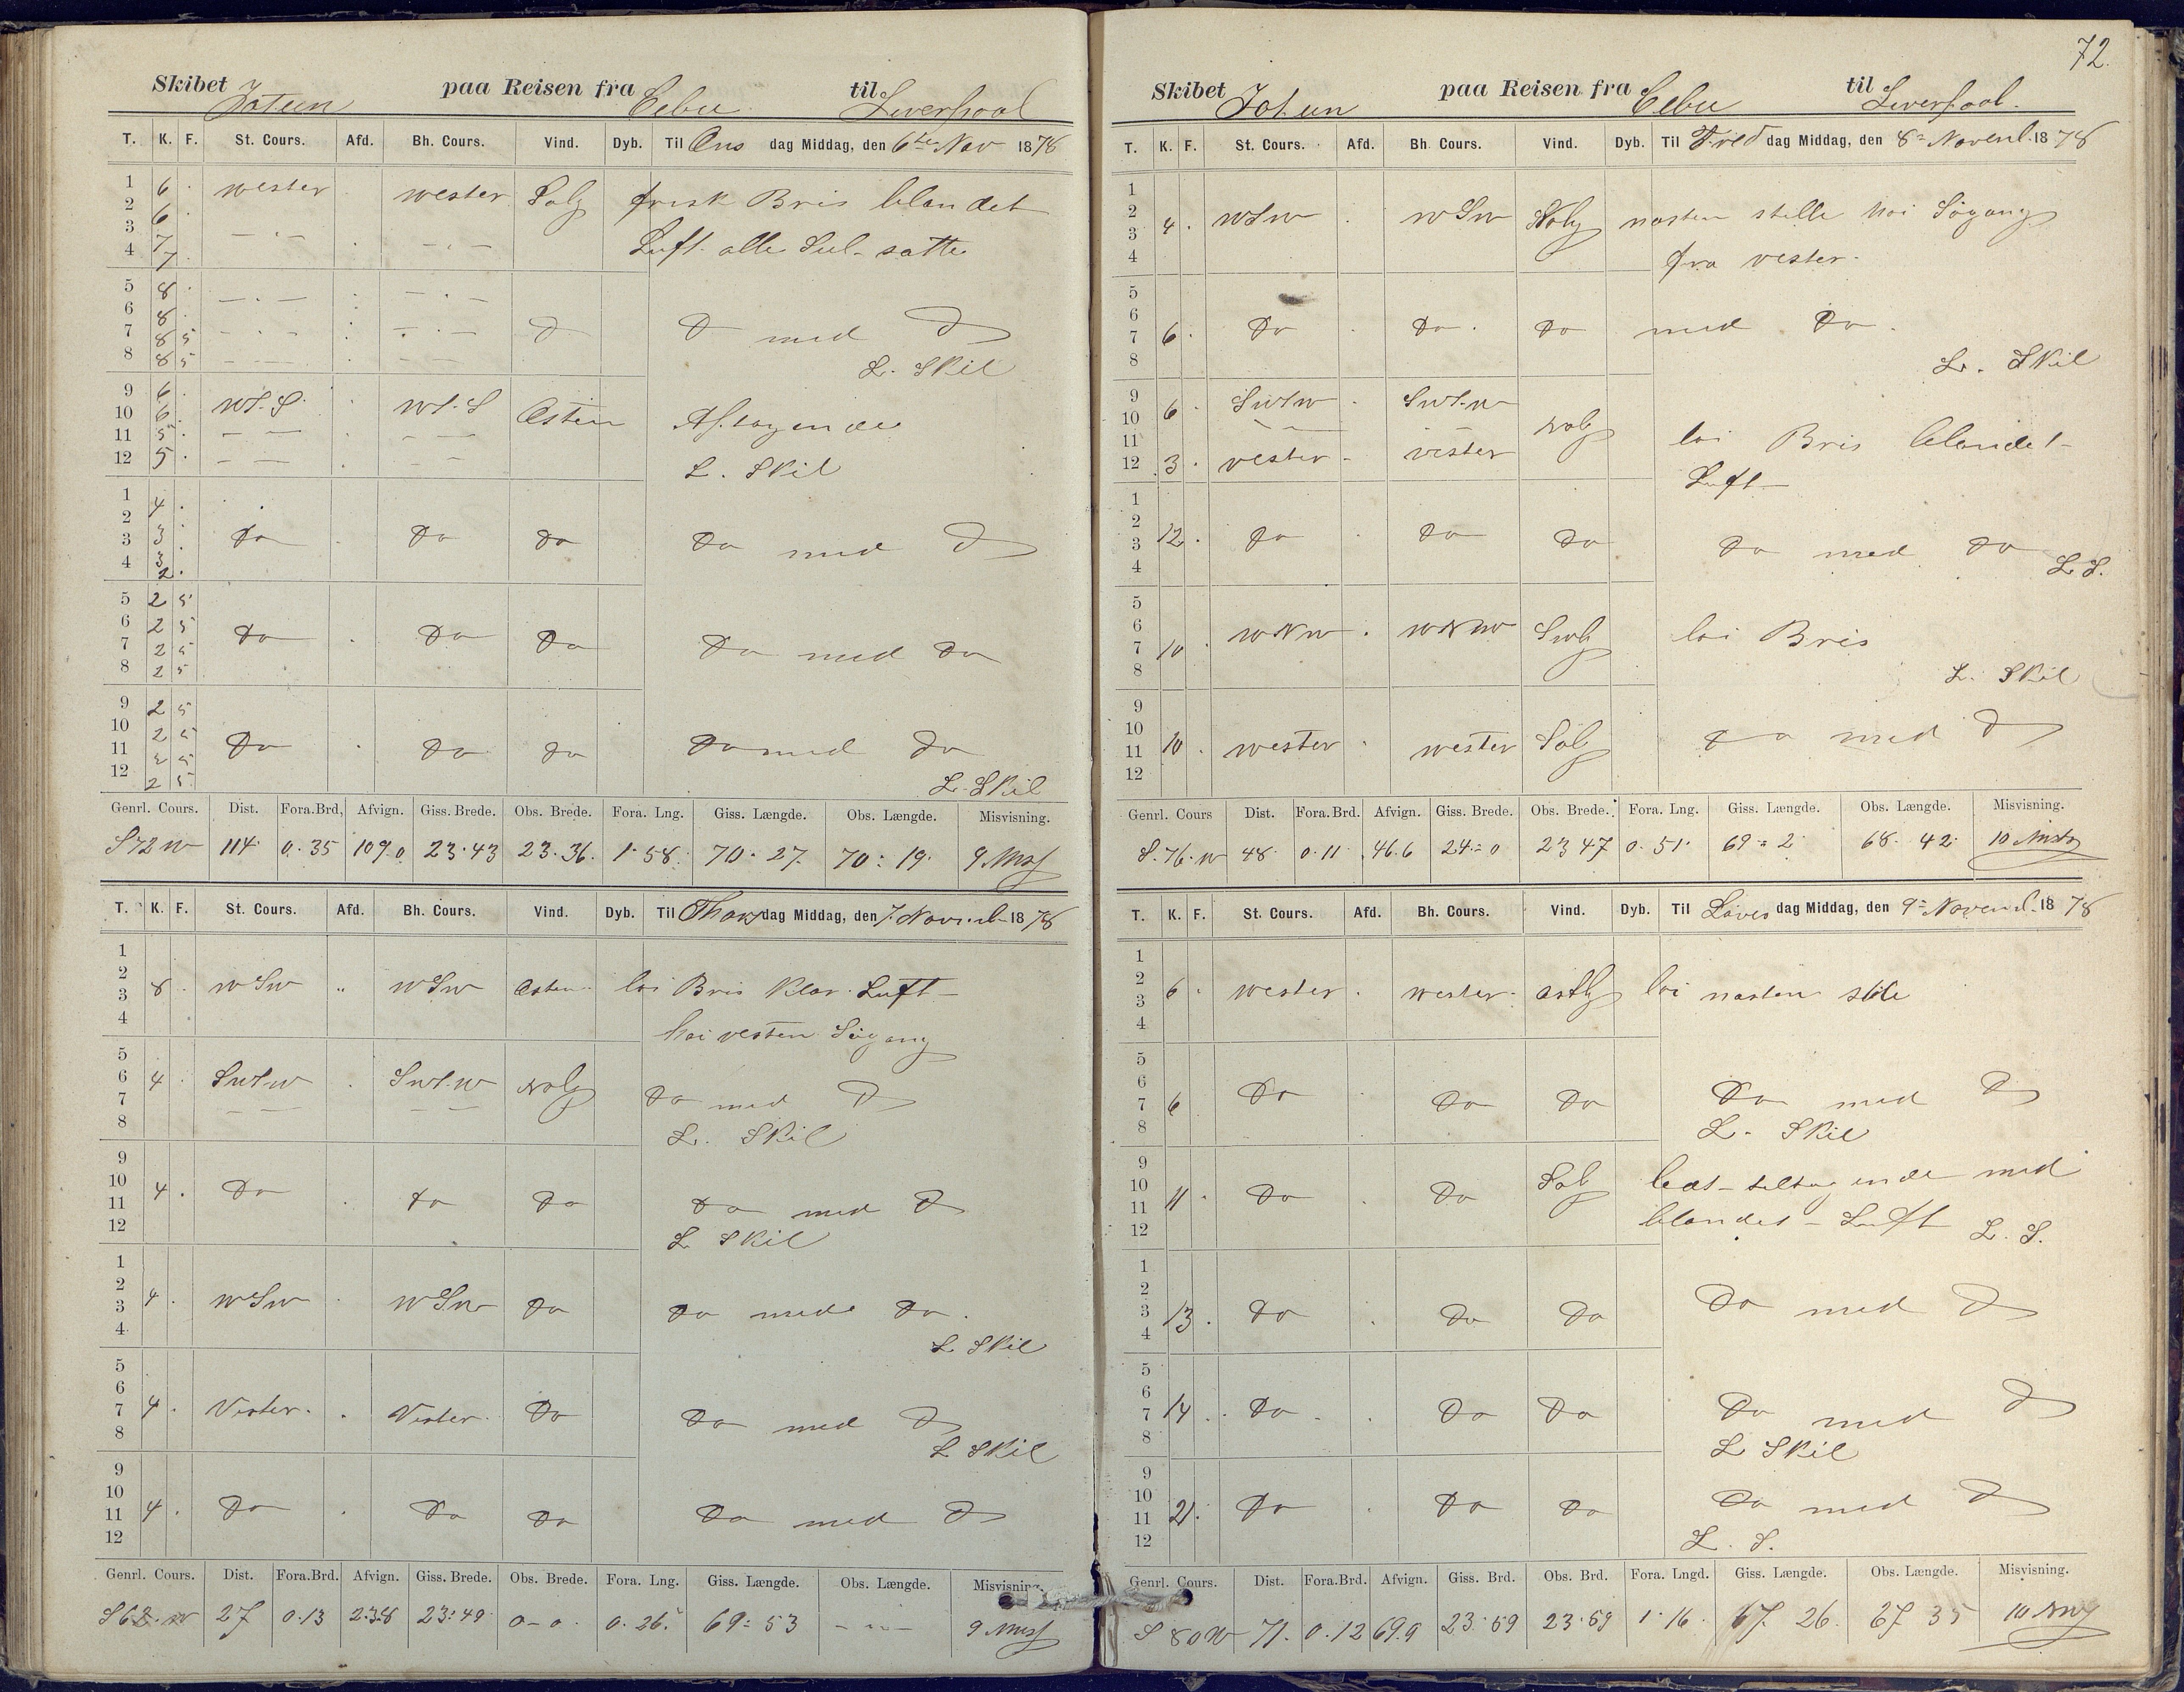 Skibet Jotun paa Reisen fra Cebu til Liverpool
T. K. F. St. Cours. Afd. Bh. Cours. Vind. Dyb. Til Ons dag Middag, den 6te Nov 1878
1 6 . wester . wester Solg frisk Bris blandet
2 6 .
3 7 — . — . — . — Luft alle Seil satte
4 7
5 8 . — . — : — . —
6 8 .
7 8 5 — . — : — . — D D med D
8 8 5 — — . — —
L. Skil
9 6 . WtS . WtS Osten Aftagende
10 6 .
11 5 . — — . — —
12 5 . — — . — —
L. Skil
1 4 .
2 3 . Do . Do Do Do med D
3 3 .
4 2 .
5 2 5
6 2 5 Do . Do Do Do med Do
7 2 5
8 2 5
9 2 5
10 2 5 Do . Do Do Do med Do
11 2 5
12 2 5
L. Skil
Genrl. Cours. Dist. Fora.Brd, Afvign. Giss. Brede. Obs. Brede. Fora. Lng. Giss. Længde. Obs. Længde. Misvisning.
S72W 114 0.35 109.0 23.43 23.36. 1.58. 70.27. 70:19. 9
T. K. F. St. Cours. Afd. Bh. Cours. Vind. Dyb. Til Thorsdag Middag, den 7. Novemb 1878
1
2
3 8 . WSW " WSW Osten loi Bris Klar Luft
4
hoi vesten Sögang
5
6 4 . SWtW . SWtW Nolg Do med D
7 — — — —
8
L. Skil
9
10 4 . Do . Do Do Do med D
11
12
L Skil
1
2
3 4 . WSW . WSW Do Do med Do.
4
L Skil
5
6
7 4 . Vester. . Vester. Do Do med D
8
L Skil
9
10
11 4 . Do . Do Do Do med D
12
Genrl. Cours. Dist. Fora.Brd. Afvign. Giss. Brede. Obs. Brede. Fora. Lng. Giss. Længde. Obs. Længde. Misvisning.
S62.W 27 0.13 23.8 23:49 0-0. 0.26. 69:53 — " — 9
72.
Skibet Jotun paa Reisen fra Cebu til Liverpool.
T. K. F. St. Cours. Afd. Bh. Cours. Vind. Dyb. Til Fre dag Middag, den 8= Novemb. 1878
1
2
3 4 . WSW . WSW Nolg nasten stille hoi Sögang
4
fra vester.
5
6
7 6 . Do . Do . Do med Do.
8
L. Skil
9
10 6 . SWtW . SWtW Nolg
11 — — — loi Bris blandet
12 3 . vester . vester
Luft
1
2
3 12 . Do . Do Do Do med Do
4
L. S.
5
6
7 10 . WNW . WNW Swlg loi Bris
8
L. Skil
9
10
11 10 . wester . wester Solg Do med D
12
Genrl. Cours Dist. Fora.Brd. Afvign. Giss. Brede. Obs. Brede. Fora. Lng. Giss. Længde. Obs. Længde. Misvisning.
S.76.W 48. 0.11. 46.6 24.=0 23 47 0.51. 69=2. 68. 42. 10
T. K. F. St. Cours. Afd. Bh. Cours. Vind. Dyb. Til Löver dag Middag, den 9= Novemb. 1878
1
2
3 6 . wester . wester . ostlg loi nasten stile
4
5
6
7 6 . Do . Do Do Do med D
8
L. Skil
9
10 Solg tiltagende med
11 11 . Do . Do
12
blandet Luft L. S.
1
2
3 13 . Do . Do Do Do med D
4
5
6
7 14 . Do . . Do Do Do med D
8
L Skil
9
10
11 21 . Do . Do Do Do med D
12
L. S.
Genrl. Cours. Dist. Fora.Brd. Afvign. Giss. Brd. Obs. Brd. Fora. Lngd. Giss. Længde. Obs. Længde. Misvisning.
S 80W 71. 0.12 69.9 23.59 23.59 1.16. 67. 26. 67 35 10